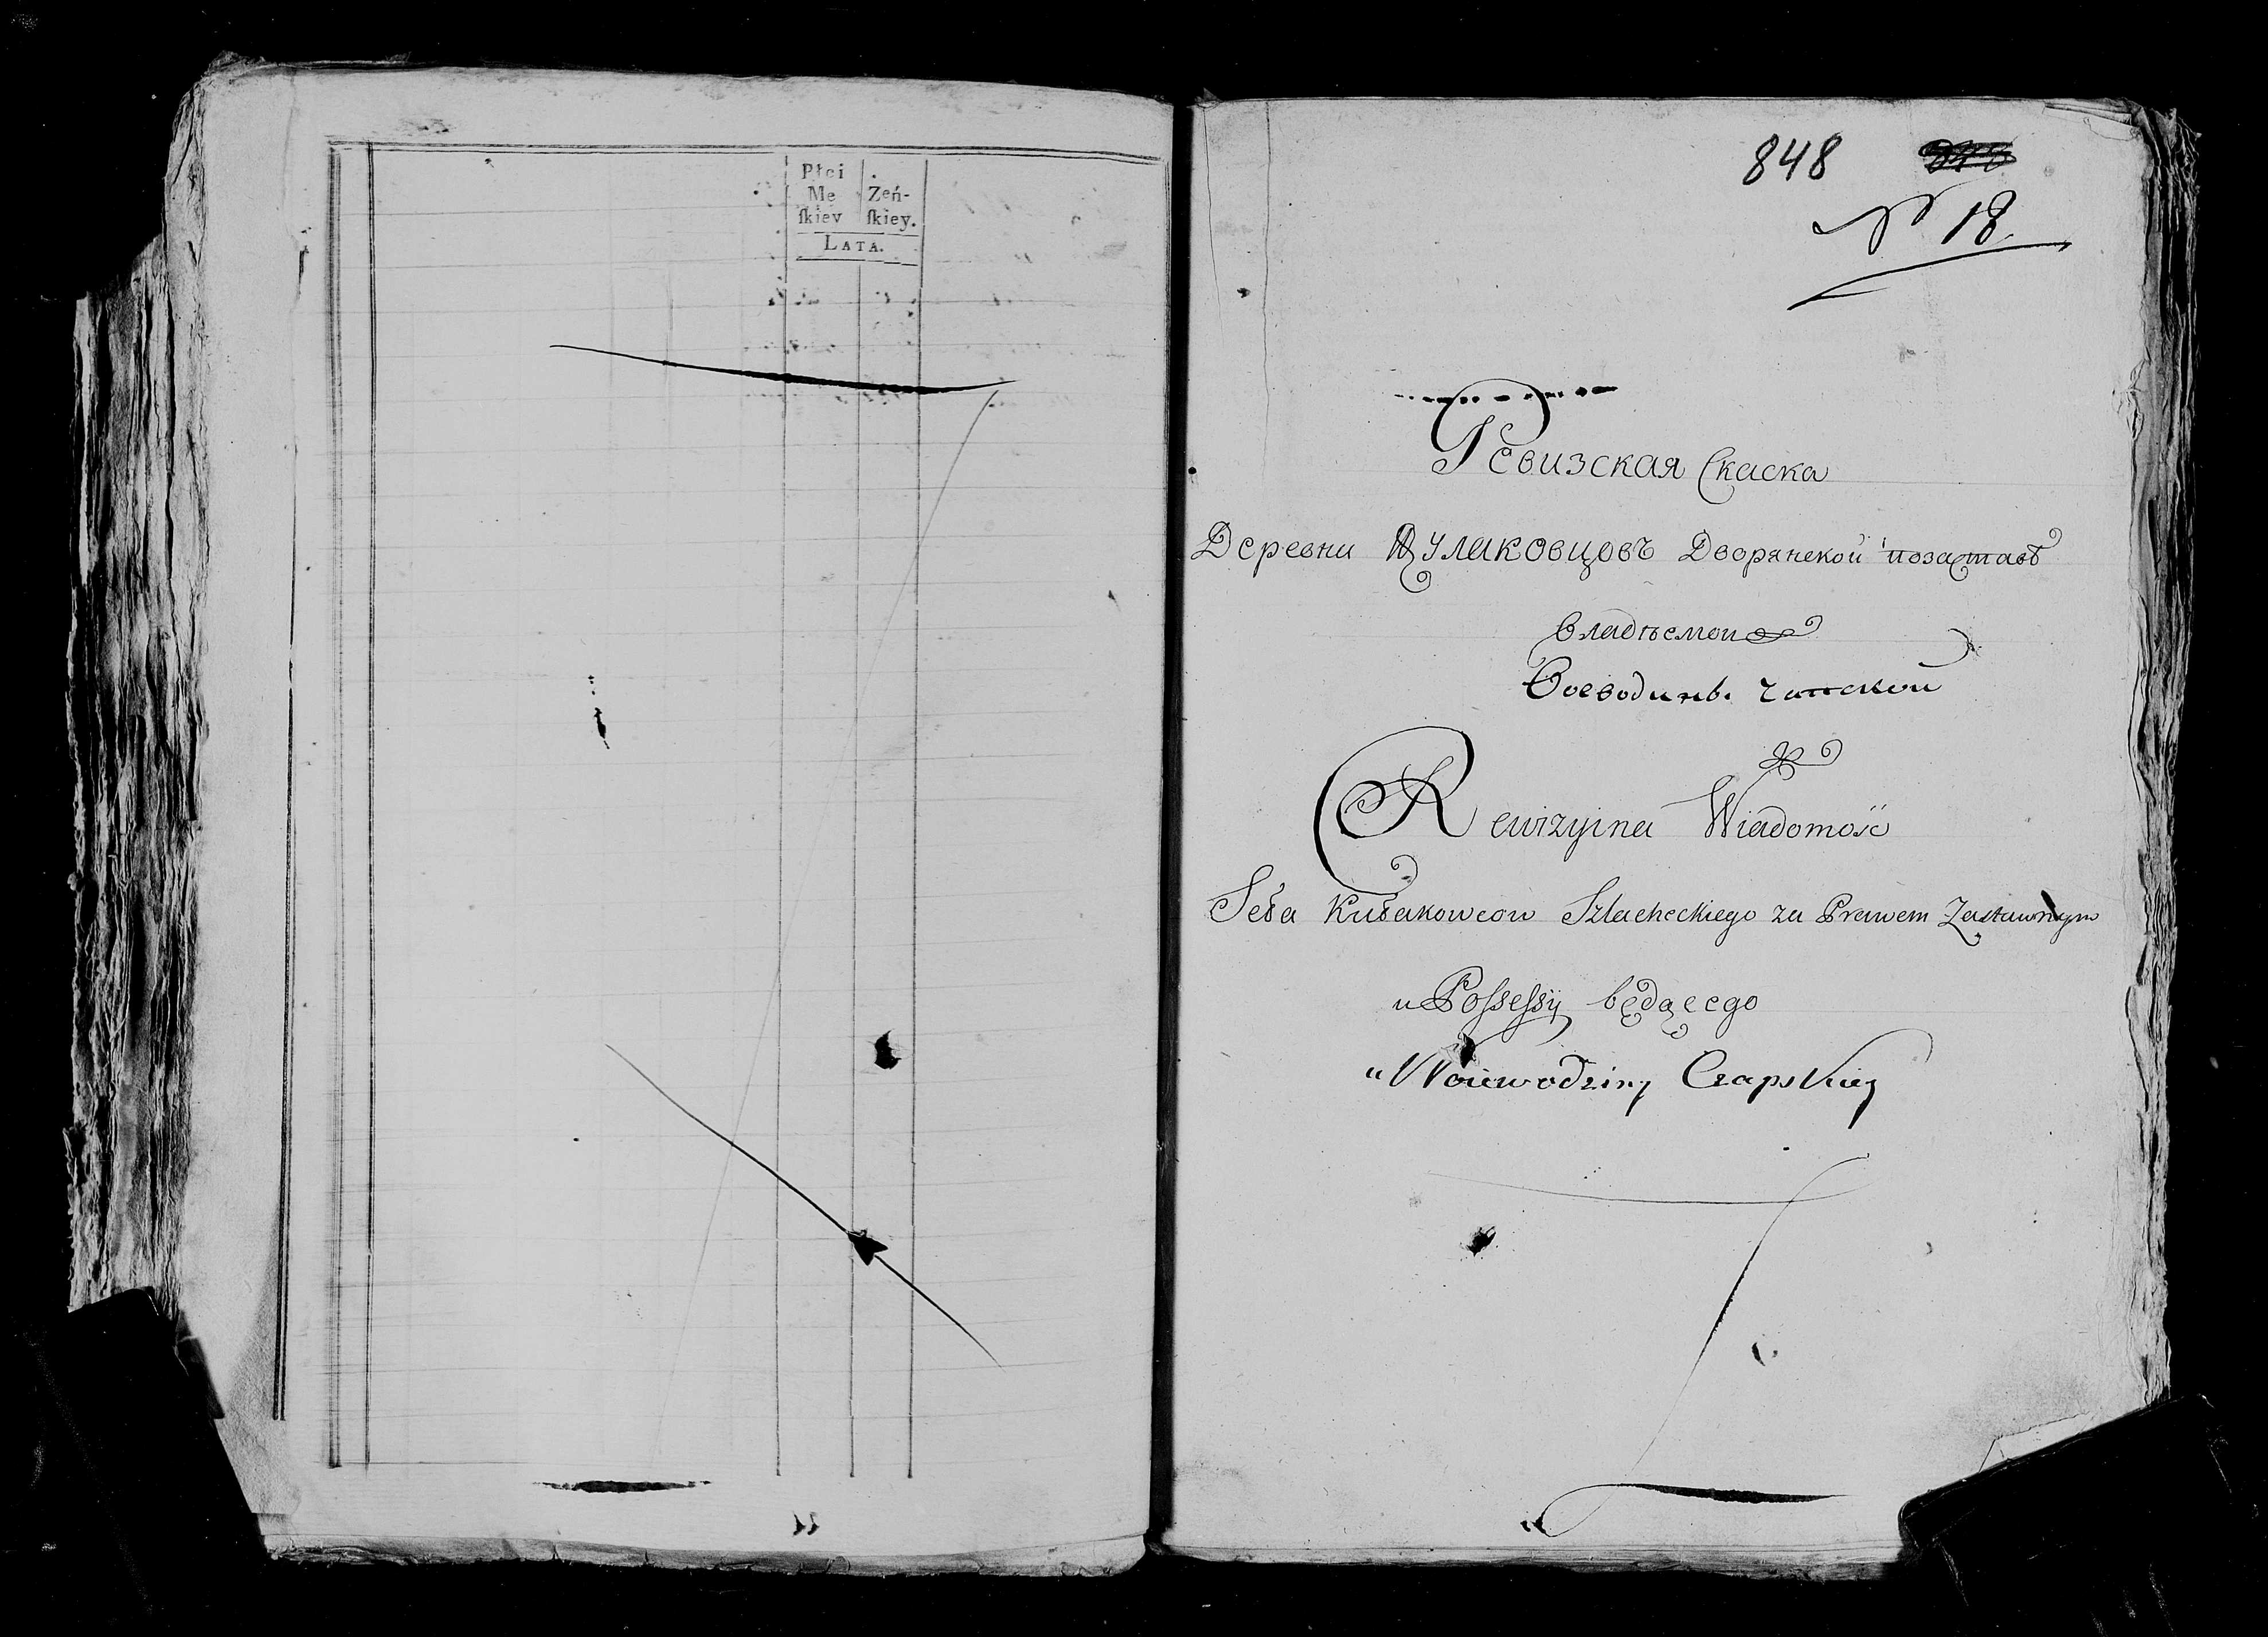 Płci
Me Żeń-
ſkiey ſkiey.
LATA.
848
№ 18.
Ревизская Скаска
Деревни Кулаковцовъ Дворянской позастав
владѣемой
Воеводинѣ. Чапской
Rewizyina Wiadomość
Seła Kułakowcow Szlacheckiego za Prawem Zastawnym
w Possessÿ będącego
u Woiewodziny Czapskiey